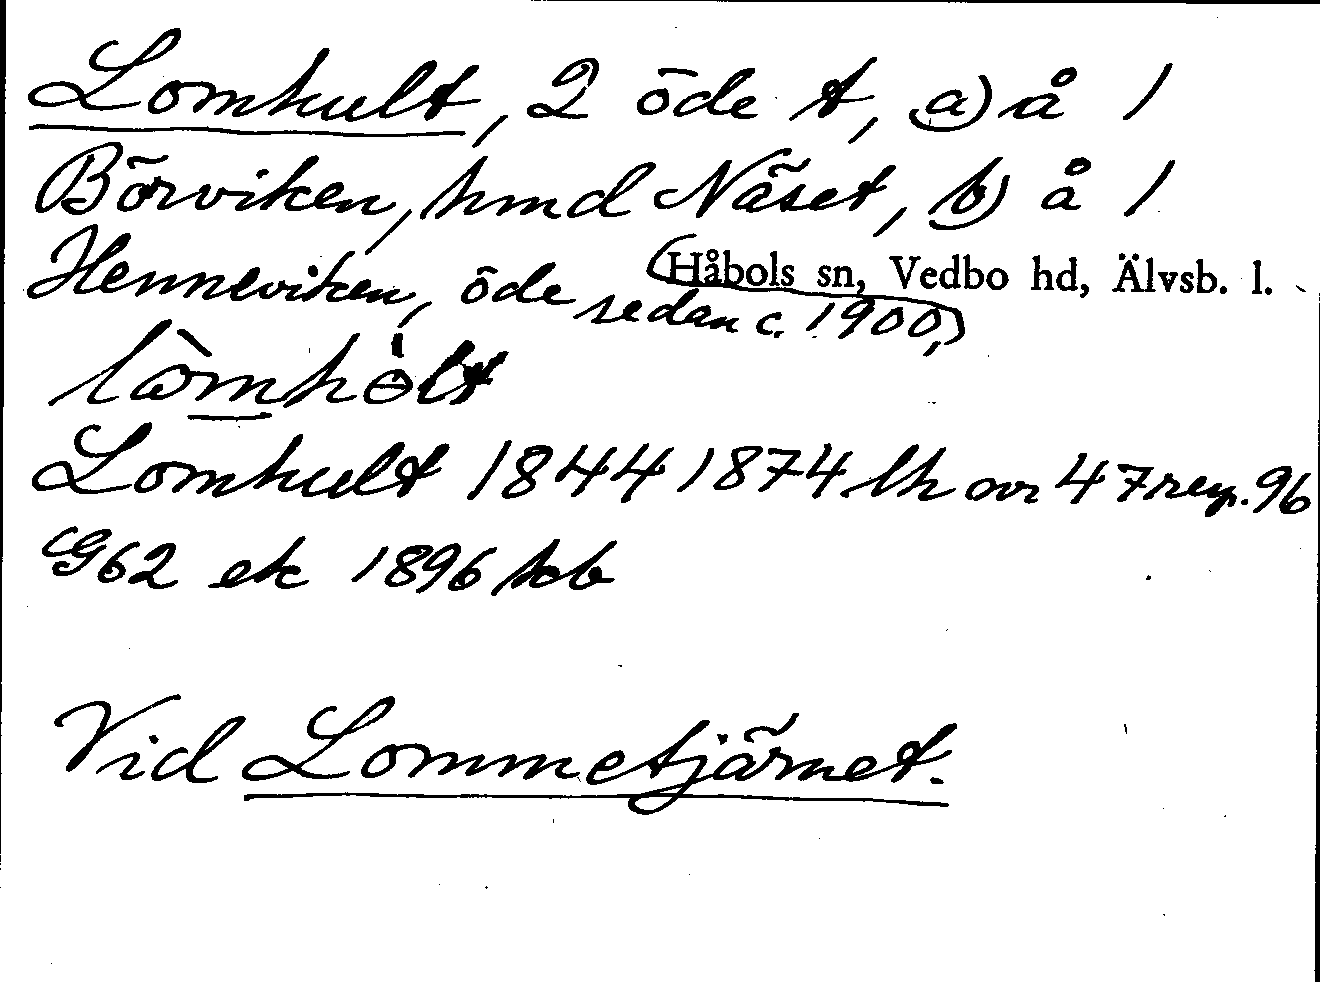 Lomhult, 2 öde t, a) å 1
Börviken, hmd Näset, b) å 1
Henneviken, öde sedan c. 1900,
Håbols sn, Vedbo hd, Älvsb. l.
Lomhult 1844 1874 lh nr 47 reg. 96
G62 ek 1896 kb
Vid Lommetjärnet.